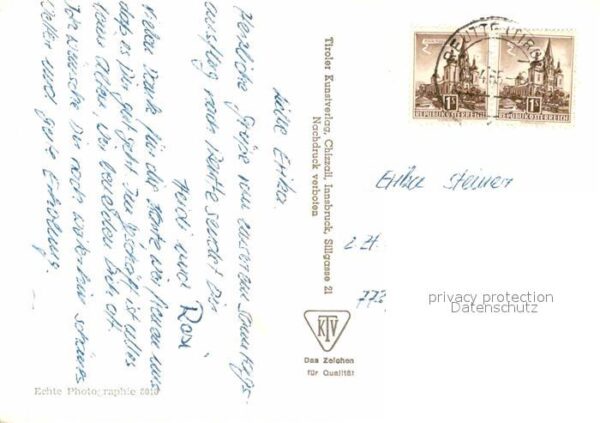 Liebe Erika.
Herzliche Grüße von unserem Sonntags-
ausflug nach Reutte sendet Dir
Heidi und Rosi
Vielen Dank für die Karte wir freuen uns
daß es Dir gut geht. Im Geschäft ist alles
beim alten, wir Dich oft.
Ich wünsche Dir noch weiterhin schönes
Wetter und gute Erholung.
Echte Photographie
Tiroler Kunstverlag, Chizzali, Innsbruck, Sillgasse 21
Nachdruck verboten
KTV
Das Zeichen
für Qualität
REUTTE, TIROL
1S
REPUBLIK ÖSTERREICH
1S
REPUBLIK ÖSTERREICH
Erika Steiner
z. Zt.
privacy protection
Datenschutz